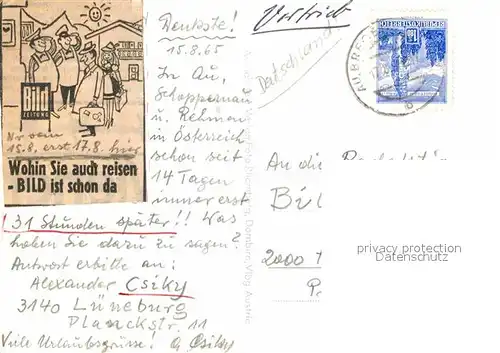 Bild
ZEITUNG
Nr vom
15.8. erst 17.8. hier
Wohin Sie auch reisen
- BILD ist schon da
Denkste!
15.8.65
In Au,
Schoppernau
u. Rehmen
in Österreich
schon seit
14 Tagen
immer erst
31 Stunden später!! Was
haben Sie dazu zu sagen?
Antwort erbitte an:
Alexander Csiky
3140 Lüneburg
Planckstr. 11
Viele Urlaubsgrüsse! A. Csiky
Vertrieb
Deutschland
REPUBLIK ÖSTERREICH
An die
Bil
2000
privacy protection
Datenschutz